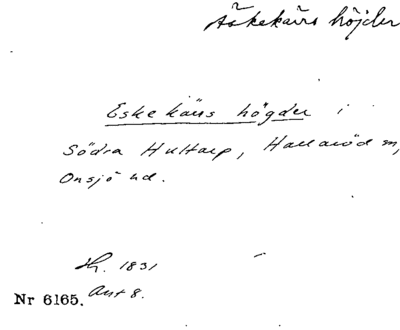 Äskekärrs höjder
Eskekärrs högder i
Södra Hultarp, Hallaröd sn,
Onsjö hd.
Hr. 1831
Akt 8.
Nr 6165.